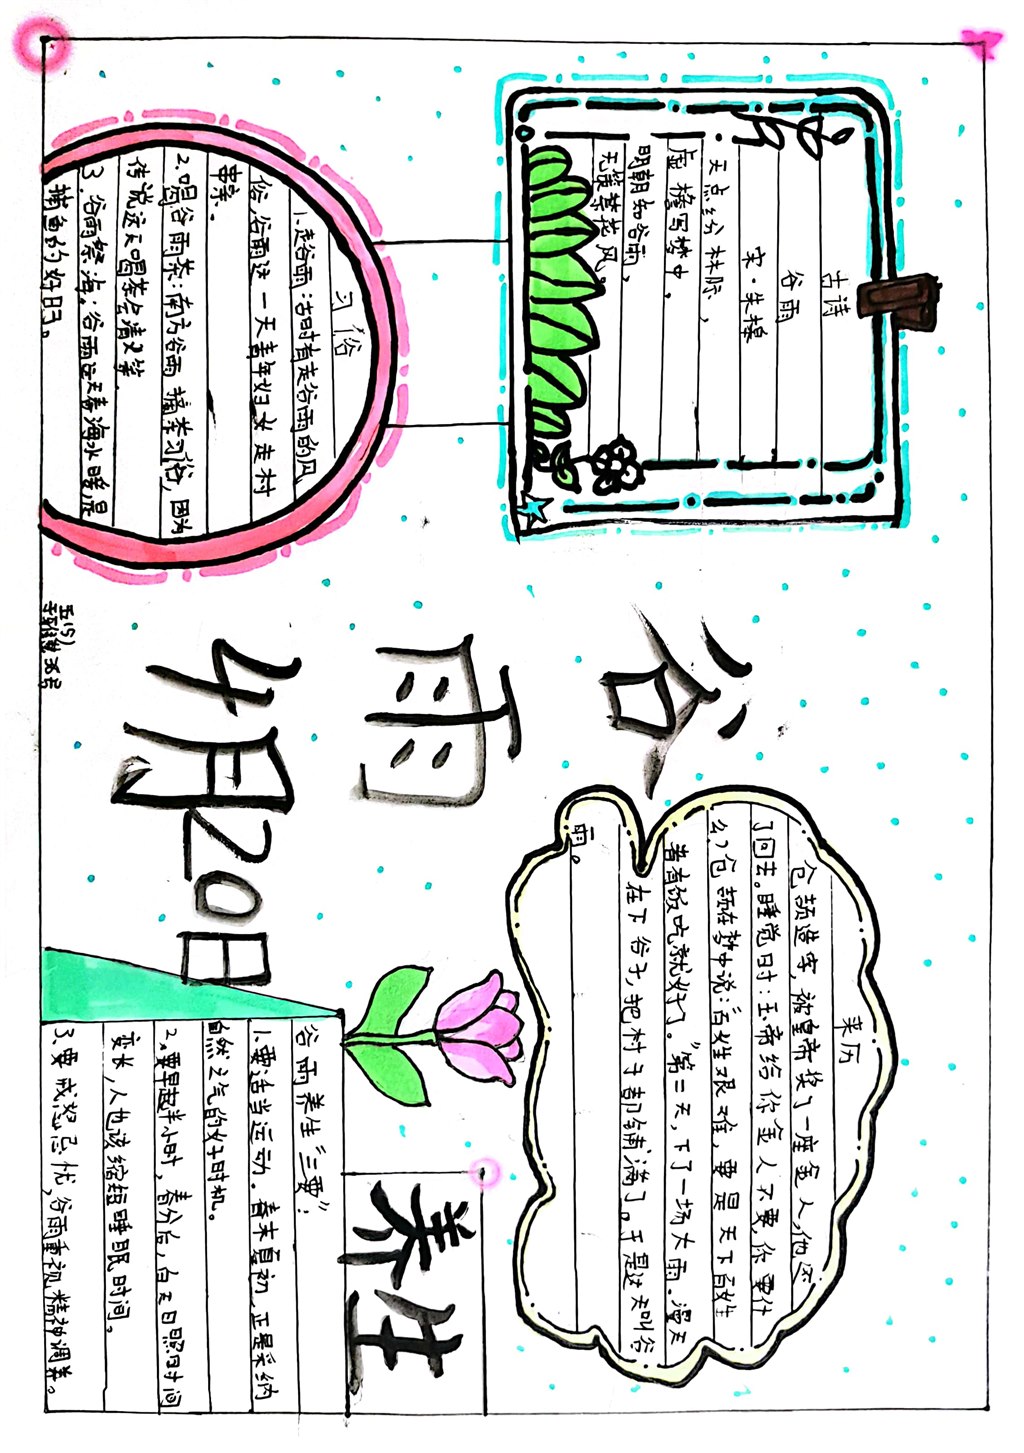 古诗
谷雨
宋·朱槔
天点纷林际，
虚檐写梦中，
明朝知谷雨，
无策禁花风。
来历
仓颉造字，被皇帝奖了一座金人，他医
了回去。睡觉时：玉帝给你金人不要，你要什
么？仓颉在梦中说：百姓艰难，要是天下百姓
者有饭吃就好了。"第二天，下了一场大雨。漫天
在下谷子，把村子都铺满了。于是这天叫谷
雨。
谷
雨
4月20日
习俗
1.走谷雨：古时有走谷雨的风
俗，谷雨这一天青年妇女走村
串亲.
2.喝谷雨茶：南方谷雨摘茶习俗，因为
传说这天喝茶会清火等.
3.谷雨祭海：谷雨这天春海水暖是
捕鱼的好日。
养生
谷雨养生"三要"：
1.要适当运动.春末夏初，正是采纳
自然之气的好时机。
2.要早起半小时，春分后，白天日照时间
变长，人也该缩短睡眠时间。
3.要戒怒忌忧，谷雨重视精神调养。
五(5)